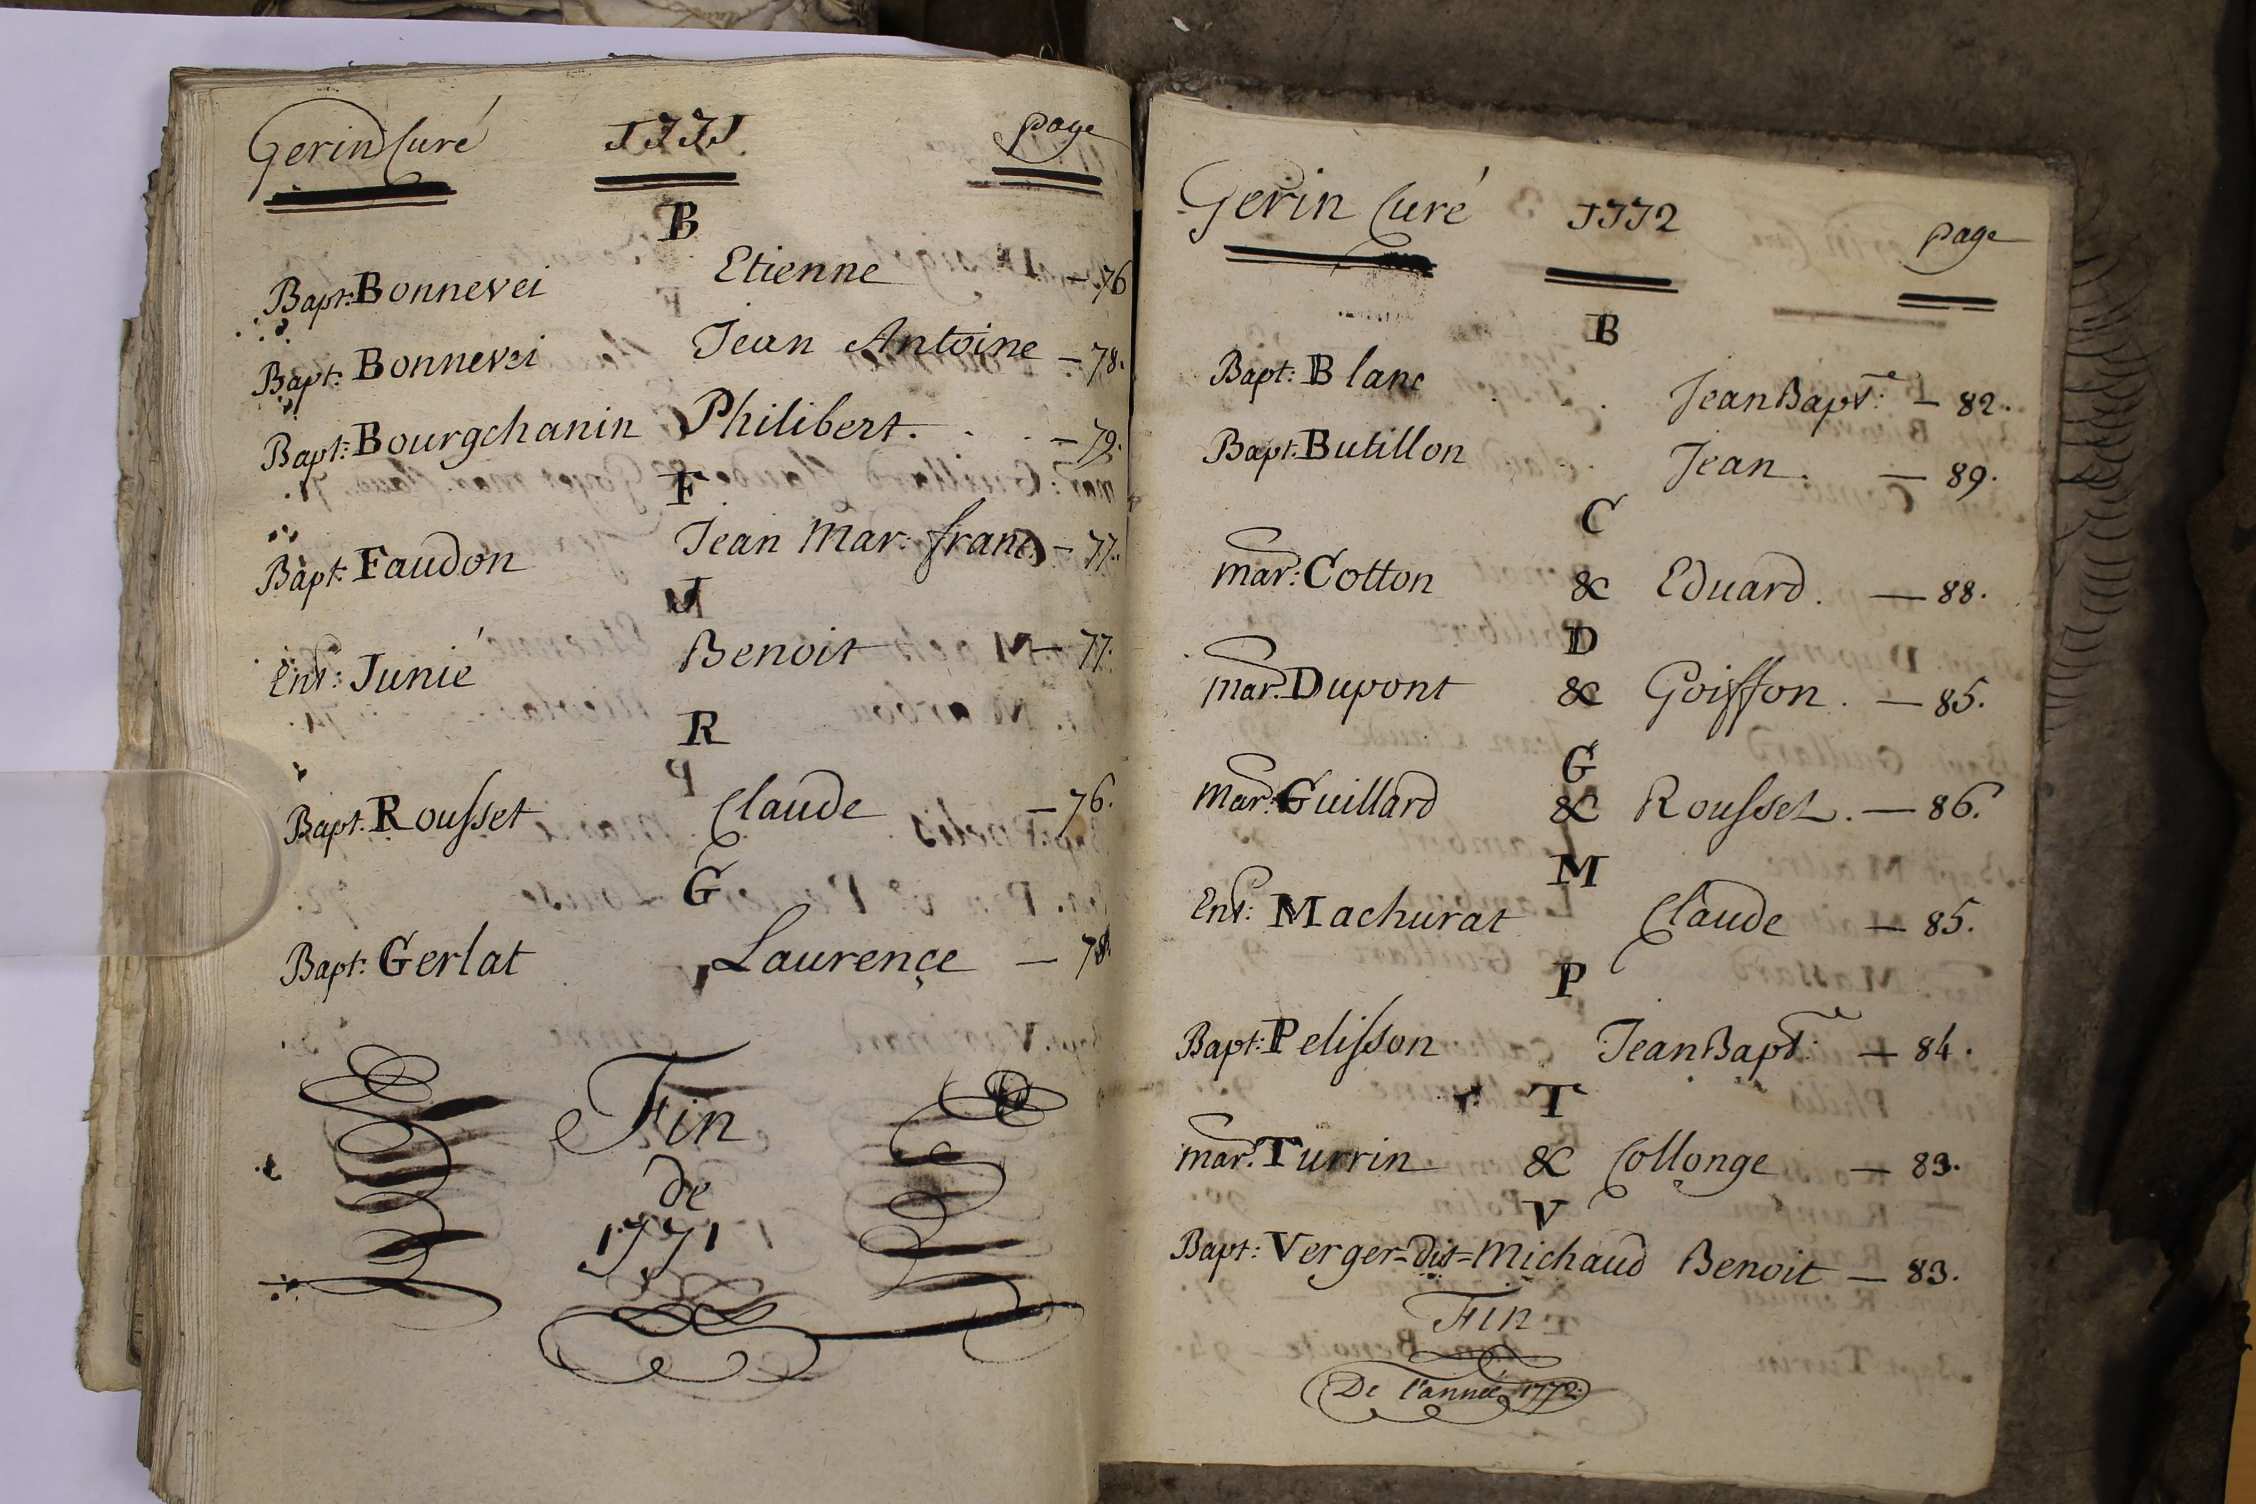 Gerin Curé 1771 page
B
Bapt: Bonnevei Etienne — 76
Bapt: Bonnevei Jean Antoine — 78.
Bapt: Bourgchanin Philibert. — 79.
F
Bapt: Faudon Jean Mar: franc. — 77.
J
Ent: Junié Benoit — 77.
R
Bapt: Rousset Claude — 76.
G
Bapt: Gerlat Laurençe — 78.
Fin
de
1771
Gerin Curé 1772 page
B
Bapt: Blanc Jean Bapt.e — 82.
Bapt: Butillon Jean. — 89.
C
mar: Cotton & Eduard. — 88.
D
mar: Dupont & Goiffon. — 85.
G
mar: Guillard & Rousset. — 86.
M
Ent: Machurat Claude — 85.
P
Bapt: Pelisson Jean Bapt.e — 84.
T
mar: Turrin & Collonge — 83.
V
Bapt: Verger=dit=Michaud Benoit — 83.
Fin
De l'année 1772.